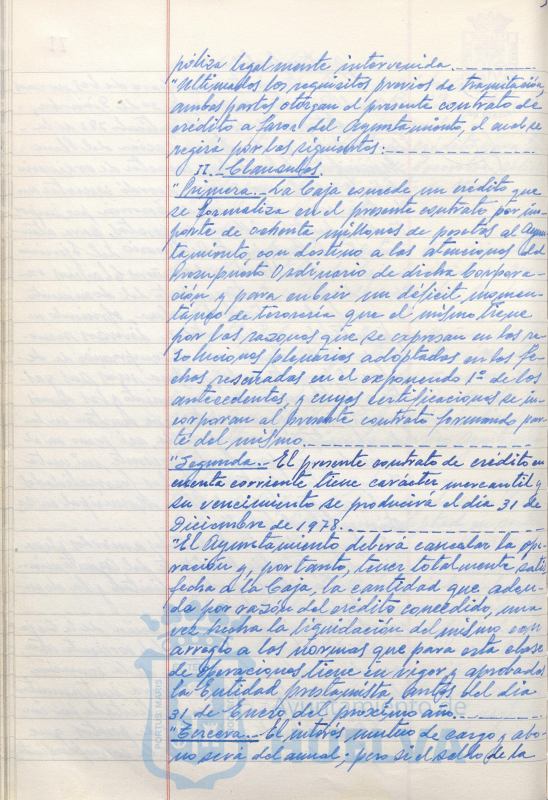 póliza legalmente intervenida.
"Ultimados los requisitos previos de tramitación,
ambas partes otorgan el presente contrato de
crédito a favor del Ayuntamiento, el cual se
regirá por las siguientes:
II. Clausulas.
"Primera.- La Caja concede un crédito que
se formaliza en el presente contrato por im-
porte de ochenta millones de pesetas al Ayun-
tamiento, con destino a las atenciones del
Presupuesto Ordinario de dicha Corpora-
ción y para cubrir un déficit momen-
táneo de tesorería que el mismo tiene
por las razones que se expresan en las re-
soluciones plenarias adoptadas en las fe-
chas reseñadas en el exponendo 1º de los
antecedentes, y cuyas certificaciones se in-
corporan al presente contrato formando par-
te del mismo.
"Segunda.- El presente contrato de crédito en
cuenta corriente tiene carácter mercantil y
su vencimiento se producirá el día 31 de
Diciembre de 1978.
"El Ayuntamiento deberá cancelar la ope-
ración y, por tanto, tener totalmente satis-
fecha a la Caja, la cantidad que adeu-
da por razón del crédito concedido, una
vez hecha la liquidación del mismo con
arreglo a las normas que para esta clase
de operaciones tiene en vigor y aprobadas
la Entidad prestamista, antes del día
31 de Enero del próximo año.
"Tercera.- El interés mutuo de cargo y abo-
no será del anual; pero si el saldo de la
PORTUS MARIS
Ayuntamiento de
HUELVA